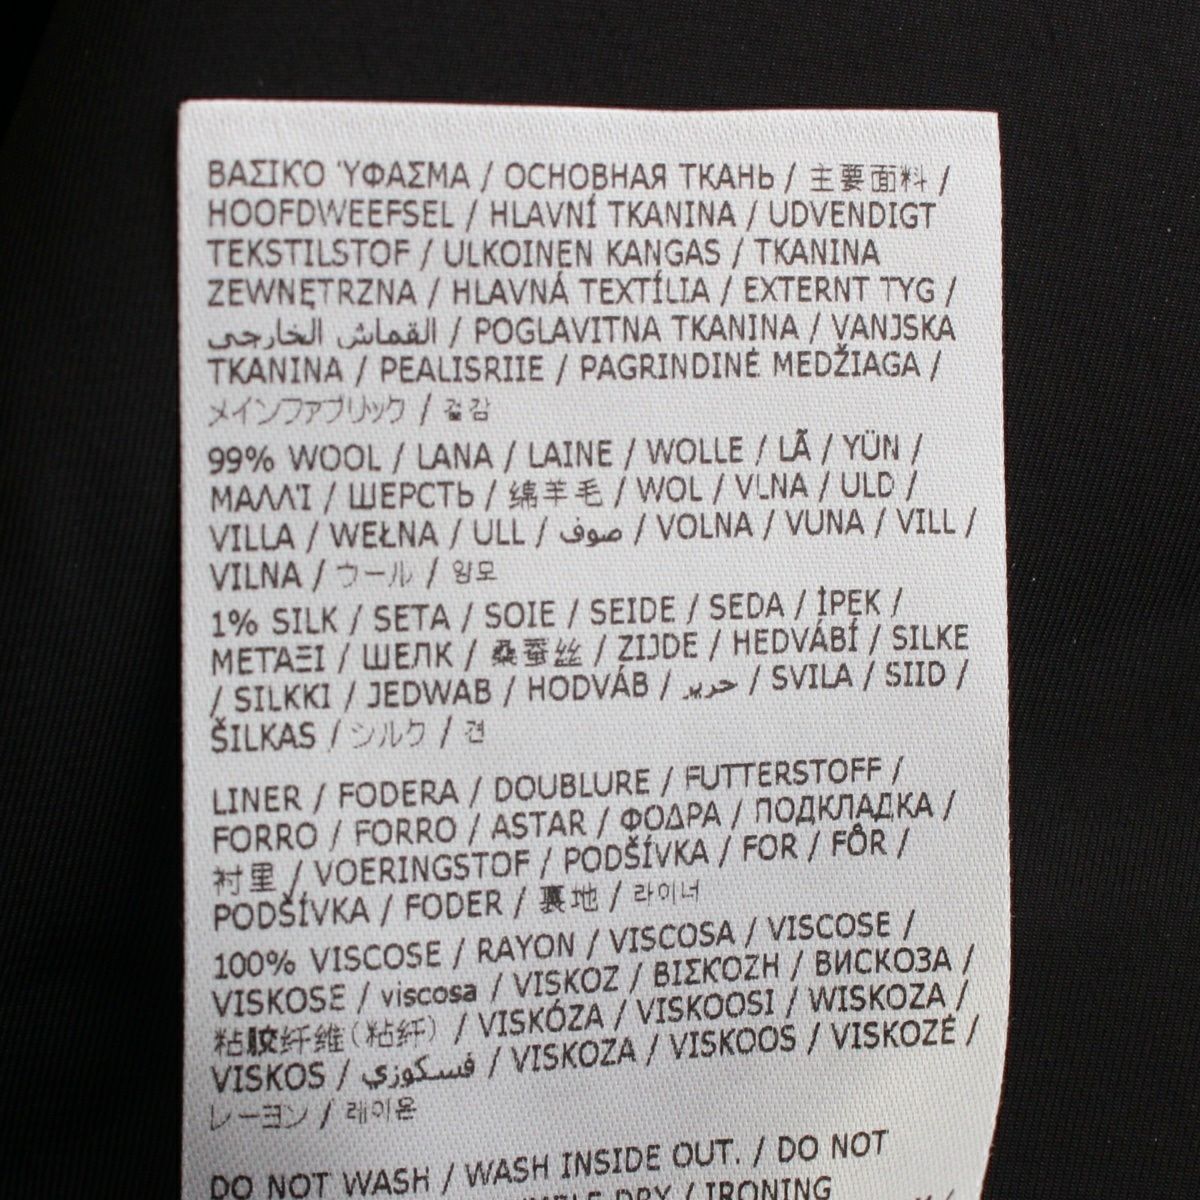 ΒΑΣΙΚΌ ΎΦΑΣΜΑ / ОСНОВНАЯ ТКАНЬ / 主要面料 /
HOOFDWEEFSEL / HLAVNÍ TKANINA / UDVENDIGT
TEKSTILSTOF / ULKOINEN KANGAS / TKANINA
ZEWNĘTRZNA / HLAVNÁ TEXTÍLIA / EXTERNT TYG /
القماش الخارجي / POGLAVITNA TKANINA / VANJSKA
TKANINA / PEALISRIIE / PAGRINDINĖ MEDŽIAGA /
メインファブリック / 겉감
99% WOOL / LANA / LAINE / WOLLE / LÃ / YÜN /
ΜΑΛΛΊ / ШЕРСТЬ / 绵羊毛 / WOL / VLNA / ULD /
VILLA / WEŁNA / ULL / صوف / VOLNA / VUNA / VILL /
VILNA / ウール / 양모
1% SILK / SETA / SOIE / SEIDE / SEDA / İPEK /
ΜΕΤΑΞΙ / ШЕЛК / 桑蚕丝 / ZIJDE / HEDVÁBÍ / SILKE
/ SILKKI / JEDWAB / HODVÁB / حرير / SVILA / SIID /
ŠILKAS / シルク / 견
LINER / FODERA / DOUBLURE / FUTTERSTOFF /
FORRO / FORRO / ASTAR / ΦΟΔΡΑ / ПОДКЛАДКА /
衬里 / VOERINGSTOF / PODŠÍVKA / FOR / FÔR /
PODŠÍVKA / FODER / 裏地 / 라이너
100% VISCOSE / RAYON / VISCOSA / VISCOSE /
VISKOSE / viscosa / VISKOZ / ΒΙΣΚΌΖΗ / ВИСКОЗА /
粘胶纤维(粘纤) / VISKÓZA / VISKOOSI / WISKOZA /
VISKOS / فسكوزي / VISKOZA / VISKOOS / VISKOZĖ /
レーヨン / 레이온
DO NOT WASH / WASH INSIDE OUT. / DO NOT
DRY / IRONING